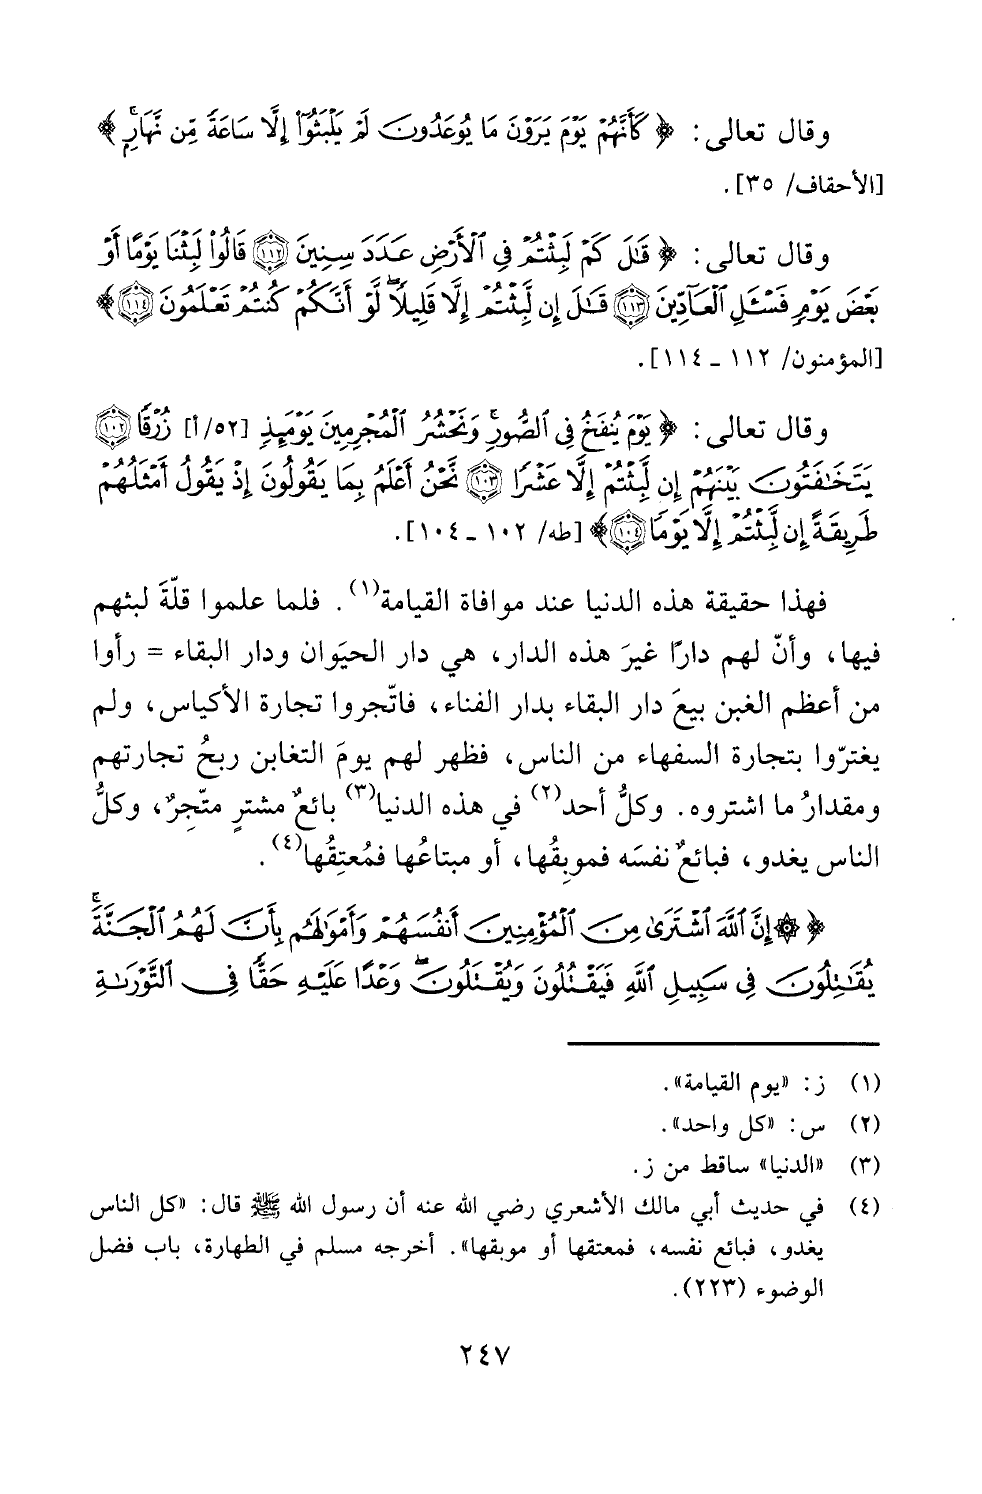 وقال تعالى: ﴿ كَأَنَّهُمْ يَوْمَ يَرَوْنَ مَا يُوعَدُونَ لَمْ يَلْبَثُوٓا۟ إِلَّا سَاعَةً مِّن نَّهَارٍۭ ﴾
[الأحقاف/ ٣٥].
وقال تعالى: ﴿ قَٰلَ كَمْ لَبِثْتُمْ فِى ٱلْأَرْضِ عَدَدَ سِنِينَ ١١٢ قَالُوا۟ لَبِثْنَا يَوْمًا أَوْ
بَعْضَ يَوْمٍ فَسْـَٔلِ ٱلْعَآدِّينَ ١١٣ قَٰلَ إِن لَّبِثْتُمْ إِلَّا قَلِيلًا ۖ لَّوْ أَنَّكُمْ كُنتُمْ تَعْلَمُونَ ١١٤ ﴾
[المؤمنون/ ١١٢ - ١١٤].
وقال تعالى: ﴿ يَوْمَ يُنفَخُ فِى ٱلصُّورِ ۚ وَنَحْشُرُ ٱلْمُجْرِمِينَ يَوْمَئِذٍ [٥٢/أ] زُرْقًا ١٠٢
يَتَخَٰفَتُونَ بَيْنَهُمْ إِن لَّبِثْتُمْ إِلَّا عَشْرًا ١٠٣ نَّحْنُ أَعْلَمُ بِمَا يَقُولُونَ إِذْ يَقُولُ أَمْثَلُهُمْ
طَرِيقَةً إِن لَّبِثْتُمْ إِلَّا يَوْمًا ١٠٤ ﴾ [طه/ ١٠٢ - ١٠٤].
فهذا حقيقة هذه الدنيا عند موافاة القيامة(١). فلما علموا قلّةَ لبثهم
فيها، وأنّ لهم دارًا غيرَ هذه الدار، هي دار الحيَوان ودار البقاء = رأوا
من أعظم الغبن بيعَ دار البقاء بدار الفناء، فاتّجروا تجارة الأكياس، ولم
يغترّوا بتجارة السفهاء من الناس، فظهر لهم يومَ التغابن ربحُ تجارتهم
ومقدارُ ما اشتروه. وكلُّ أحد(٢) في هذه الدنيا(٣) بائعٌ مشترٍ متّجرٌ، وكلُّ
الناس يغدو، فبائعٌ نفسَه فموبِقُها، أو مبتاعُها فمُعتِقُها(٤).
﴿ ۞ إِنَّ ٱللَّهَ ٱشْتَرَىٰ مِنَ ٱلْمُؤْمِنِينَ أَنفُسَهُمْ وَأَمْوَٰلَهُم بِأَنَّ لَهُمُ ٱلْجَنَّةَ ۚ
يُقَٰتِلُونَ فِى سَبِيلِ ٱللَّهِ فَيَقْتُلُونَ وَيُقْتَلُونَ ۖ وَعْدًا عَلَيْهِ حَقًّا فِى ٱلتَّوْرَىٰةِ
(١) ز: «يوم القيامة».
(٢) س: «كل واحد».
(٣) «الدنيا» ساقط من ز.
(٤) في حديث أبي مالك الأشعري رضي الله عنه أن رسول الله ﷺ قال: «كل الناس
يغدو، فبائع نفسه، فمعتقها أو موبقها». أخرجه مسلم في الطهارة، باب فضل
الوضوء (٢٢٣).
٢٤٧